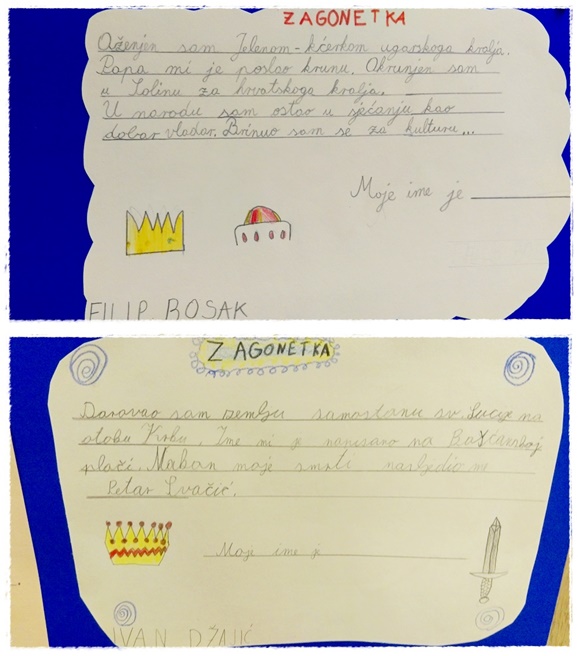 ZAGONETKA
Oženjen sam Jelenom - kćerkom ugarskoga kralja.
Papa mi je poslao krunu. Okrunjen sam
u Solinu za hrvatskoga kralja.
U narodu sam ostao u sjećanju kao
dobar vladar. Brinuo sam se za kulturu...
Moje ime je
FILIP BOSAK
ZAGONETKA
Darovao sam zemlju samostanu sv. Lucije na
otoku Krku. Ime mi je napisano na Bašćanskoj
ploči. Nakon moje smrti nasljedio me
Petar Svačić.
Moje ime je
IVAN DŽAJIĆ